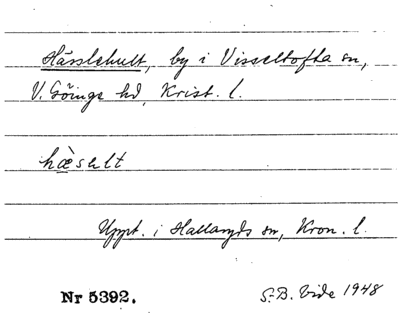 Hässlehult, by i Visseltofta sn,
V. Göinge hd, Krist. l.
hæ̀sult
Uppt. i Hallaryds sn, Kron. l.
Nr 5392.
S.-B. Vide 1948